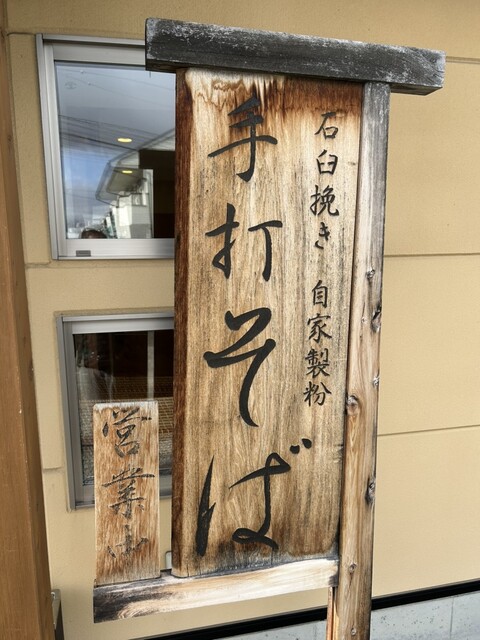 石臼挽き 自家製粉
手打そば
営業中